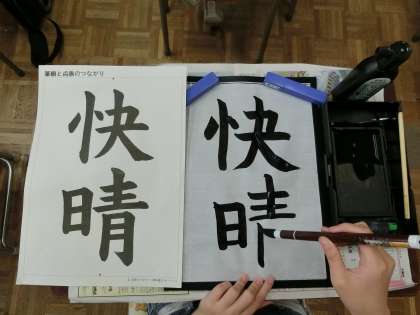 筆順と点画のつながり
快
晴
快
晴